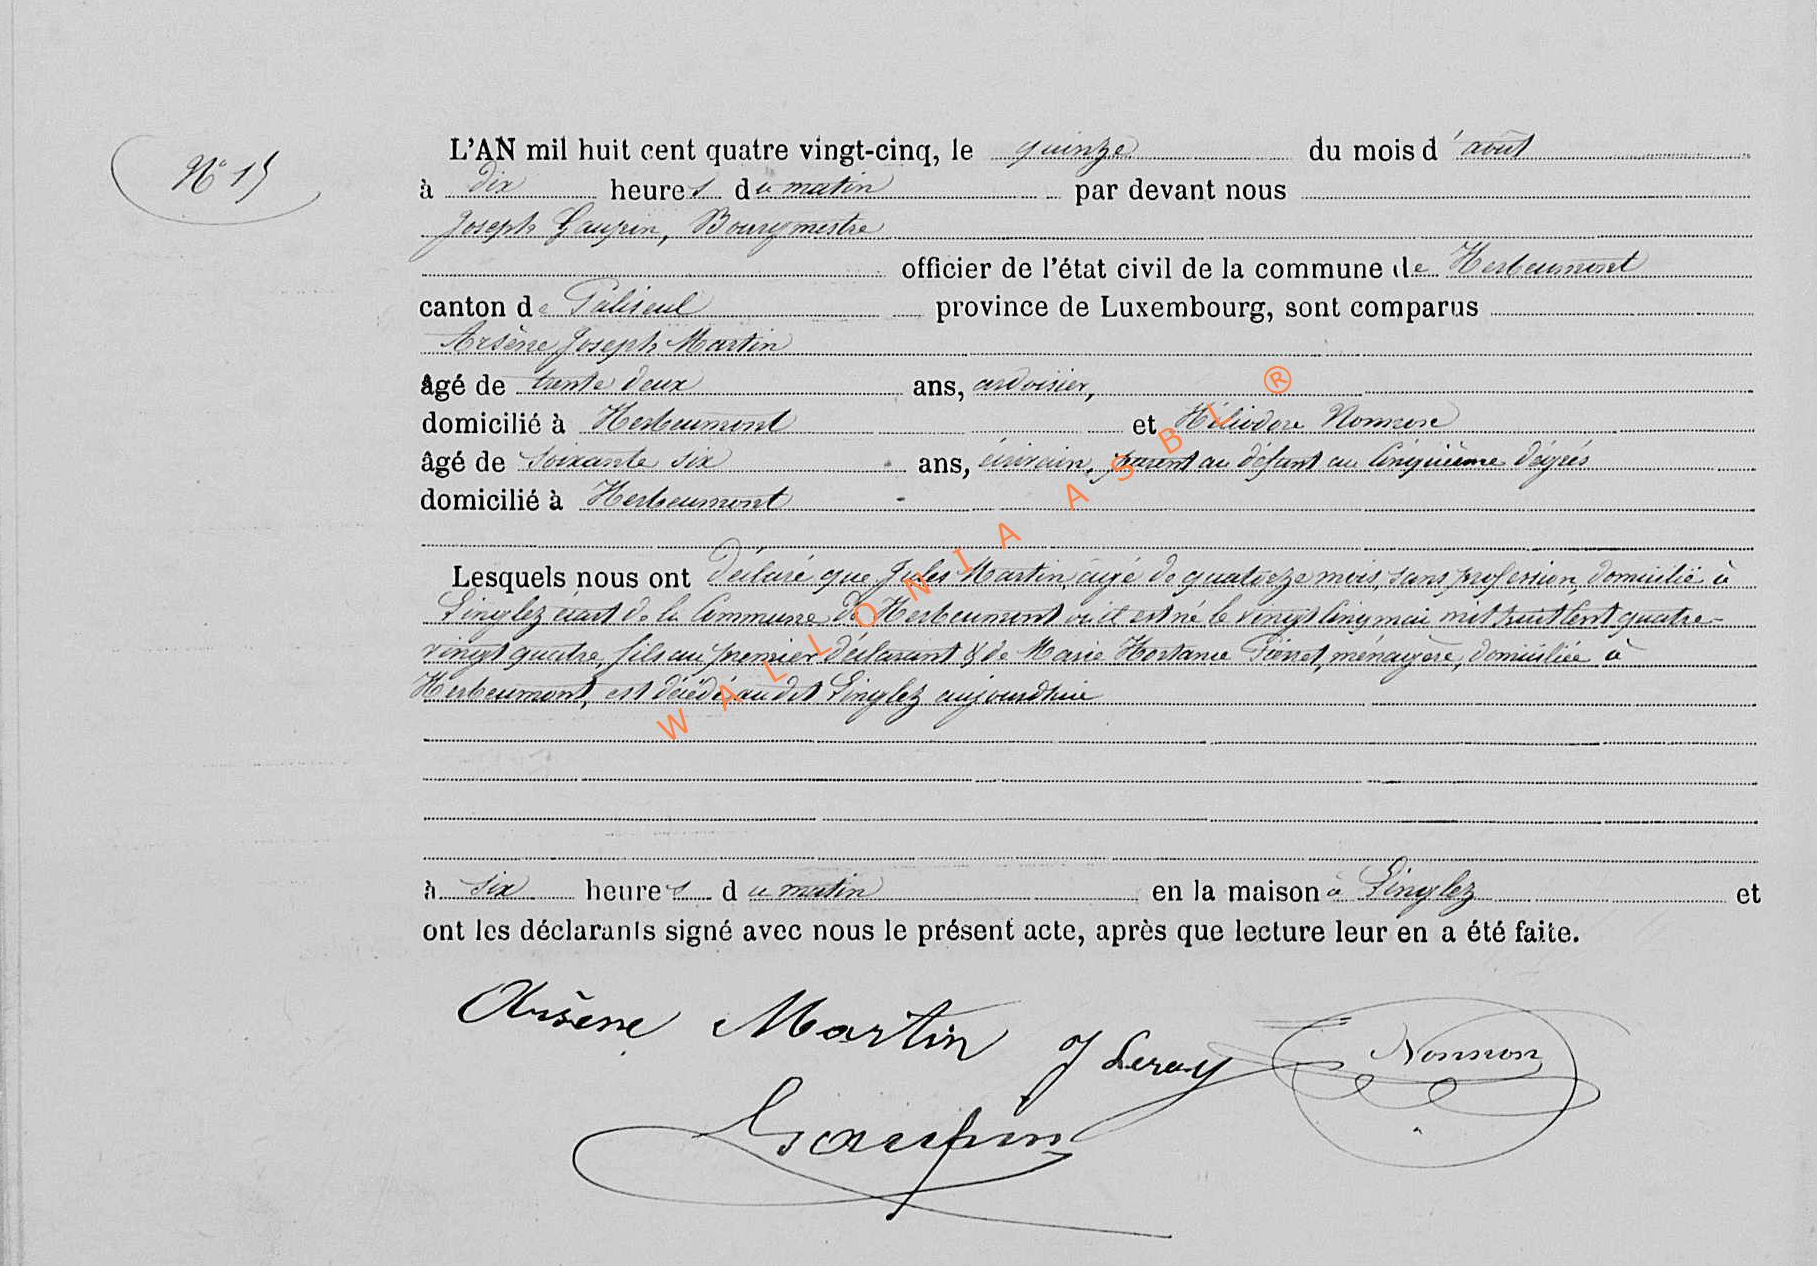 N° 15
L'AN mil huit cent quatre vingt-cinq, le quinze du mois d'août
à dix heures du matin par devant nous
Joseph Gaupin, Bourgmestre
officier de l'état civil de la commune de Herbeumont
canton de Paliseul province de Luxembourg, sont comparus
Arsène Joseph Martin
âgé de trente deux ans, ardoisier,
domicilié à Herbeumont et Héliodore Nonnon
âgé de soixante six ans, écrivain, parent au défunt au cinquième dégrés
domicilié à Herbeumont
Lesquels nous ont déclaré que Jules Martin, âgé de quatorze mois, sans profession, domicilié à
Linglez écart de la Commune de Herbeumont où il est né le vingt cinq mai mil huit cent quatre-
vingt quatre, fils au premier déclarant & de Marie Hortance Pierret, ménagère, domiciliée à
Herbeumont, est décédé au dit Linglez aujourdhui
à six heures du matin en la maison à Linglez et
ont les déclarants signé avec nous le présent acte, après que lecture leur en a été faite.
Arsène Martin J Leray Nonnon
Gaupin
WALLONIA ASBL ®